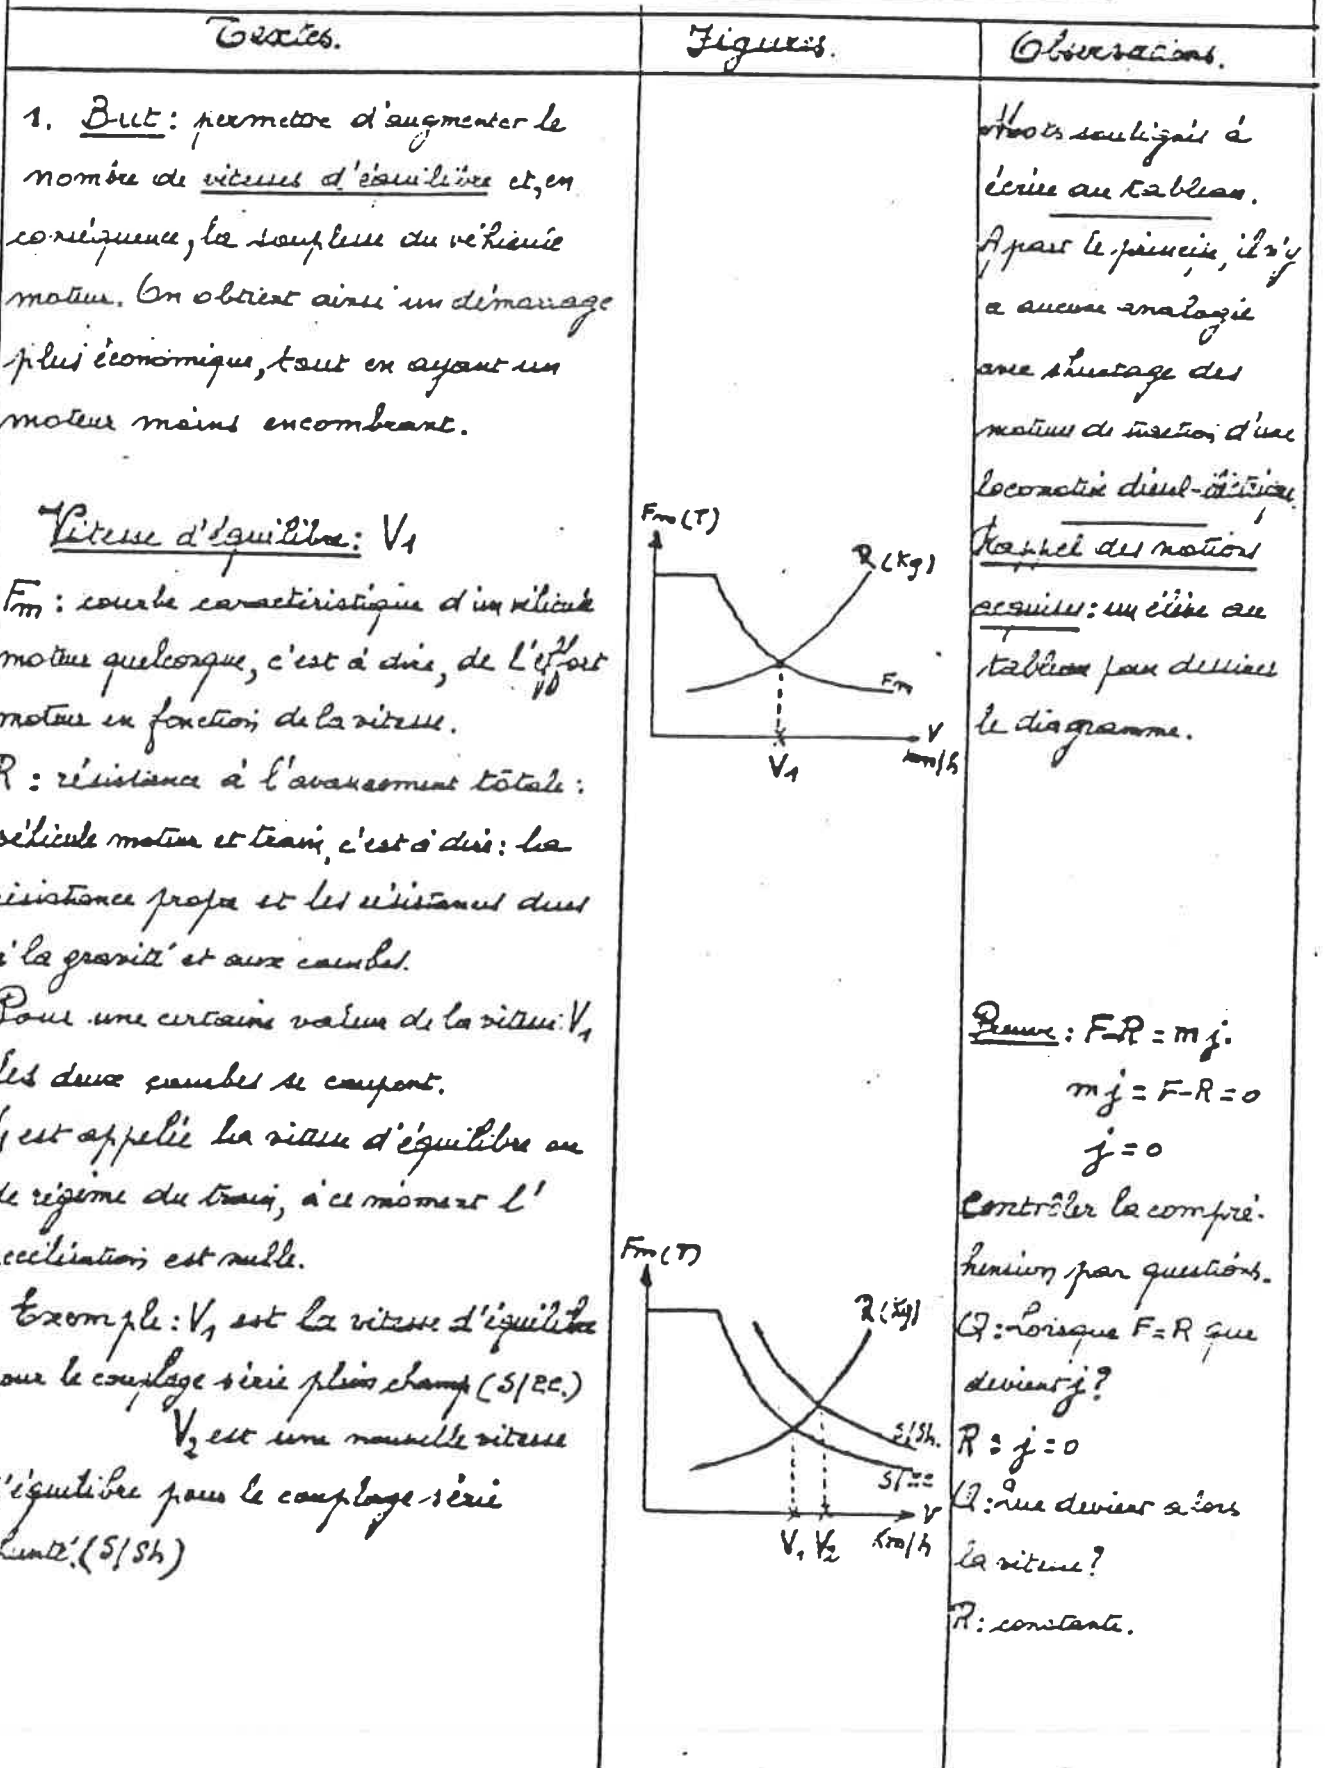 Textes.
Figures.
Observations.
1. But : permettre d'augmenter le
nombre de vitesses d'équilibre et, en
conséquence, la souplesse du véhicule
moteur. On obtient ainsi un démarrage
plus économique, tout en ayant un
moteur moins encombrant.
Vitesse d'équilibre : V1
Fm : courbe caractéristique d'un véhicule
moteur quelconque, c'est à dire, de l'effort
moteur en fonction de la vitesse.
R : résistance à l'avancement totale :
véhicule moteur et train, c'est à dire : la
résistance propre et les résistances dues
à la gravité et aux courbes.
Pour une certaine valeur de la vitesse : V1
les deux courbes se coupent.
V1 est appelée la vitesse d'équilibre ou
de régime du train, à ce moment l'
accélération est nulle.
Exemple : V1 est la vitesse d'équilibre
pour le couplage série plein champ (S/cc.)
V2 est une nouvelle vitesse
d'équilibre pour le couplage-série
shunté. (S/Sh)
Fm (T)
R (Kg)
Fm
V
km/h
V1
Fm (T)
R (Kg)
S/Sh.
S/cc
V
V1 V2 Km/h
Mots soulignés à
écrire au tableau.
A part le principe, il n'y
a aucune analogie
avec shuntage des
moteurs de traction d'une
locomotive diesel-électrique.
Rappel des notions
acquises : un élève au
tableau pour dessiner
le diagramme.
Preuve : F-R = mj.
mj = F-R = 0
j = 0
Contrôler la compré-
hension par questions.
Q : Lorsque F = R que
devient j ?
R : j = 0
Q : Que devient alors
la vitesse ?
R : constante.